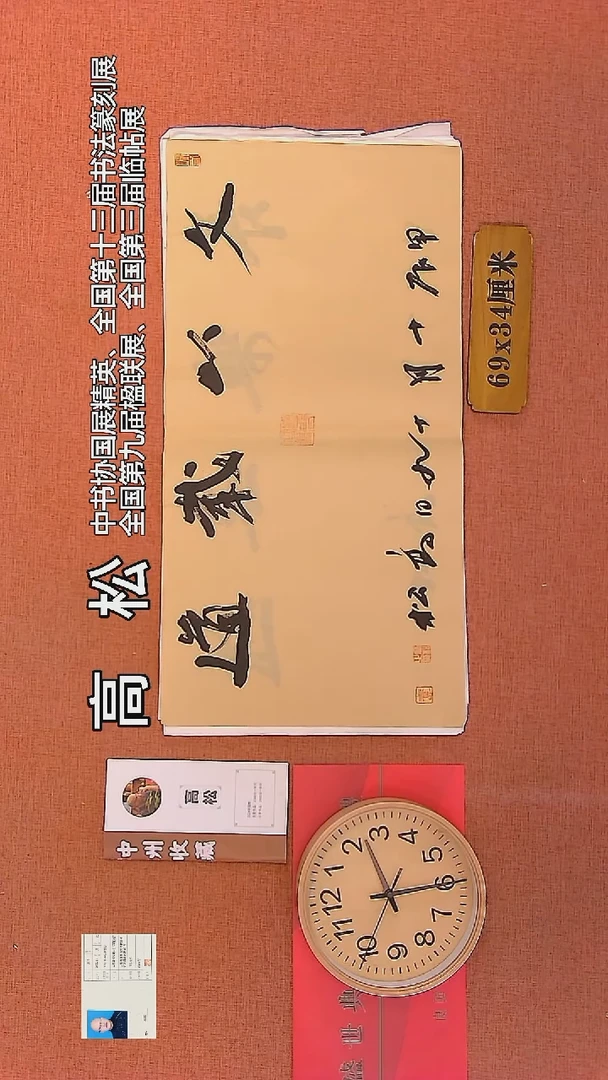 高 松
中书协国展精英、全国第十三届书法篆刻展
全国第九届楹联展、全国第三届临帖展
文以載道
甲辰十月十九日高松
69x34厘米
中州收藏
高松
盛世典
12
1
2
3
4
5
6
7
8
9
10
11